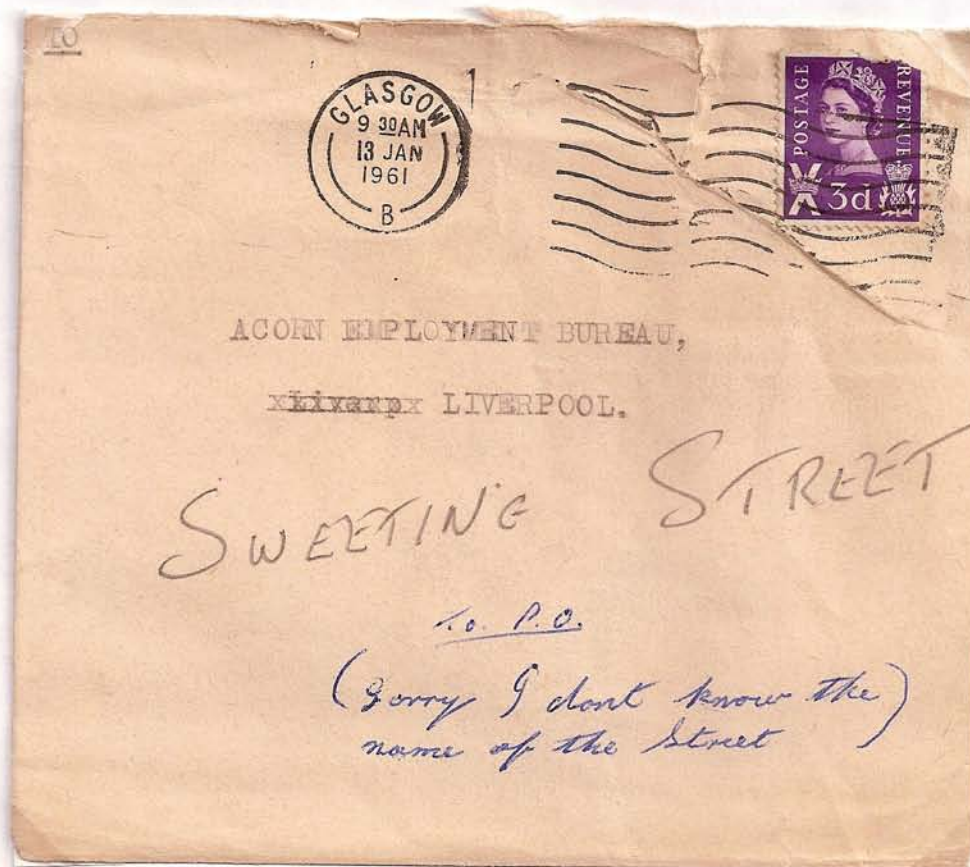 TO
GLASGOW
9 30AM
13 JAN
1961
B
POSTAGE
REVENUE
3d
ACORN EMPLOYMENT BUREAU,
xLiverpx LIVERPOOL.
SWEETING STREET
To. P.O.
(Sorry I dont know the)
name of the Street